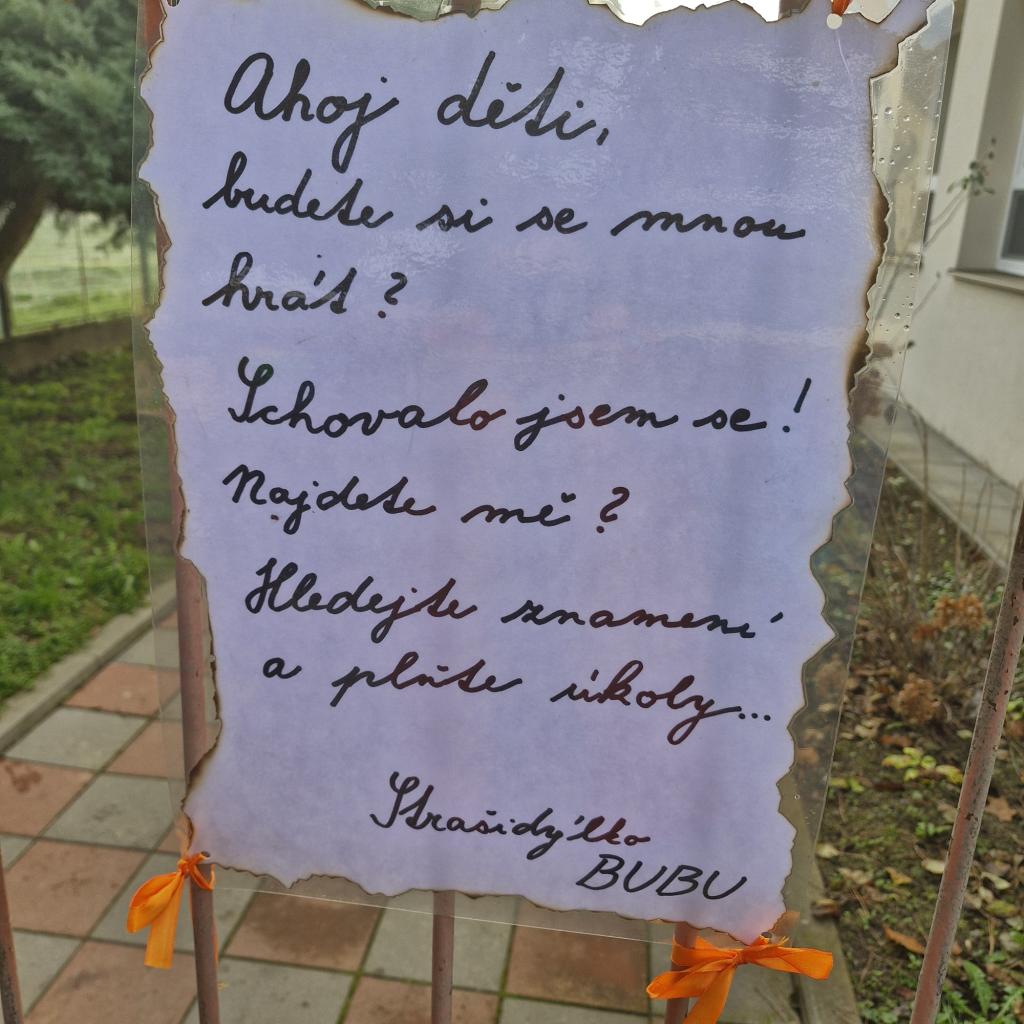 Ahoj děti,
budete si se mnou
hrát?
Schovalo jsem se!
Najdete mě?
Hledejte znamení
a plňte úkoly...
Strašidýlko
BUBU